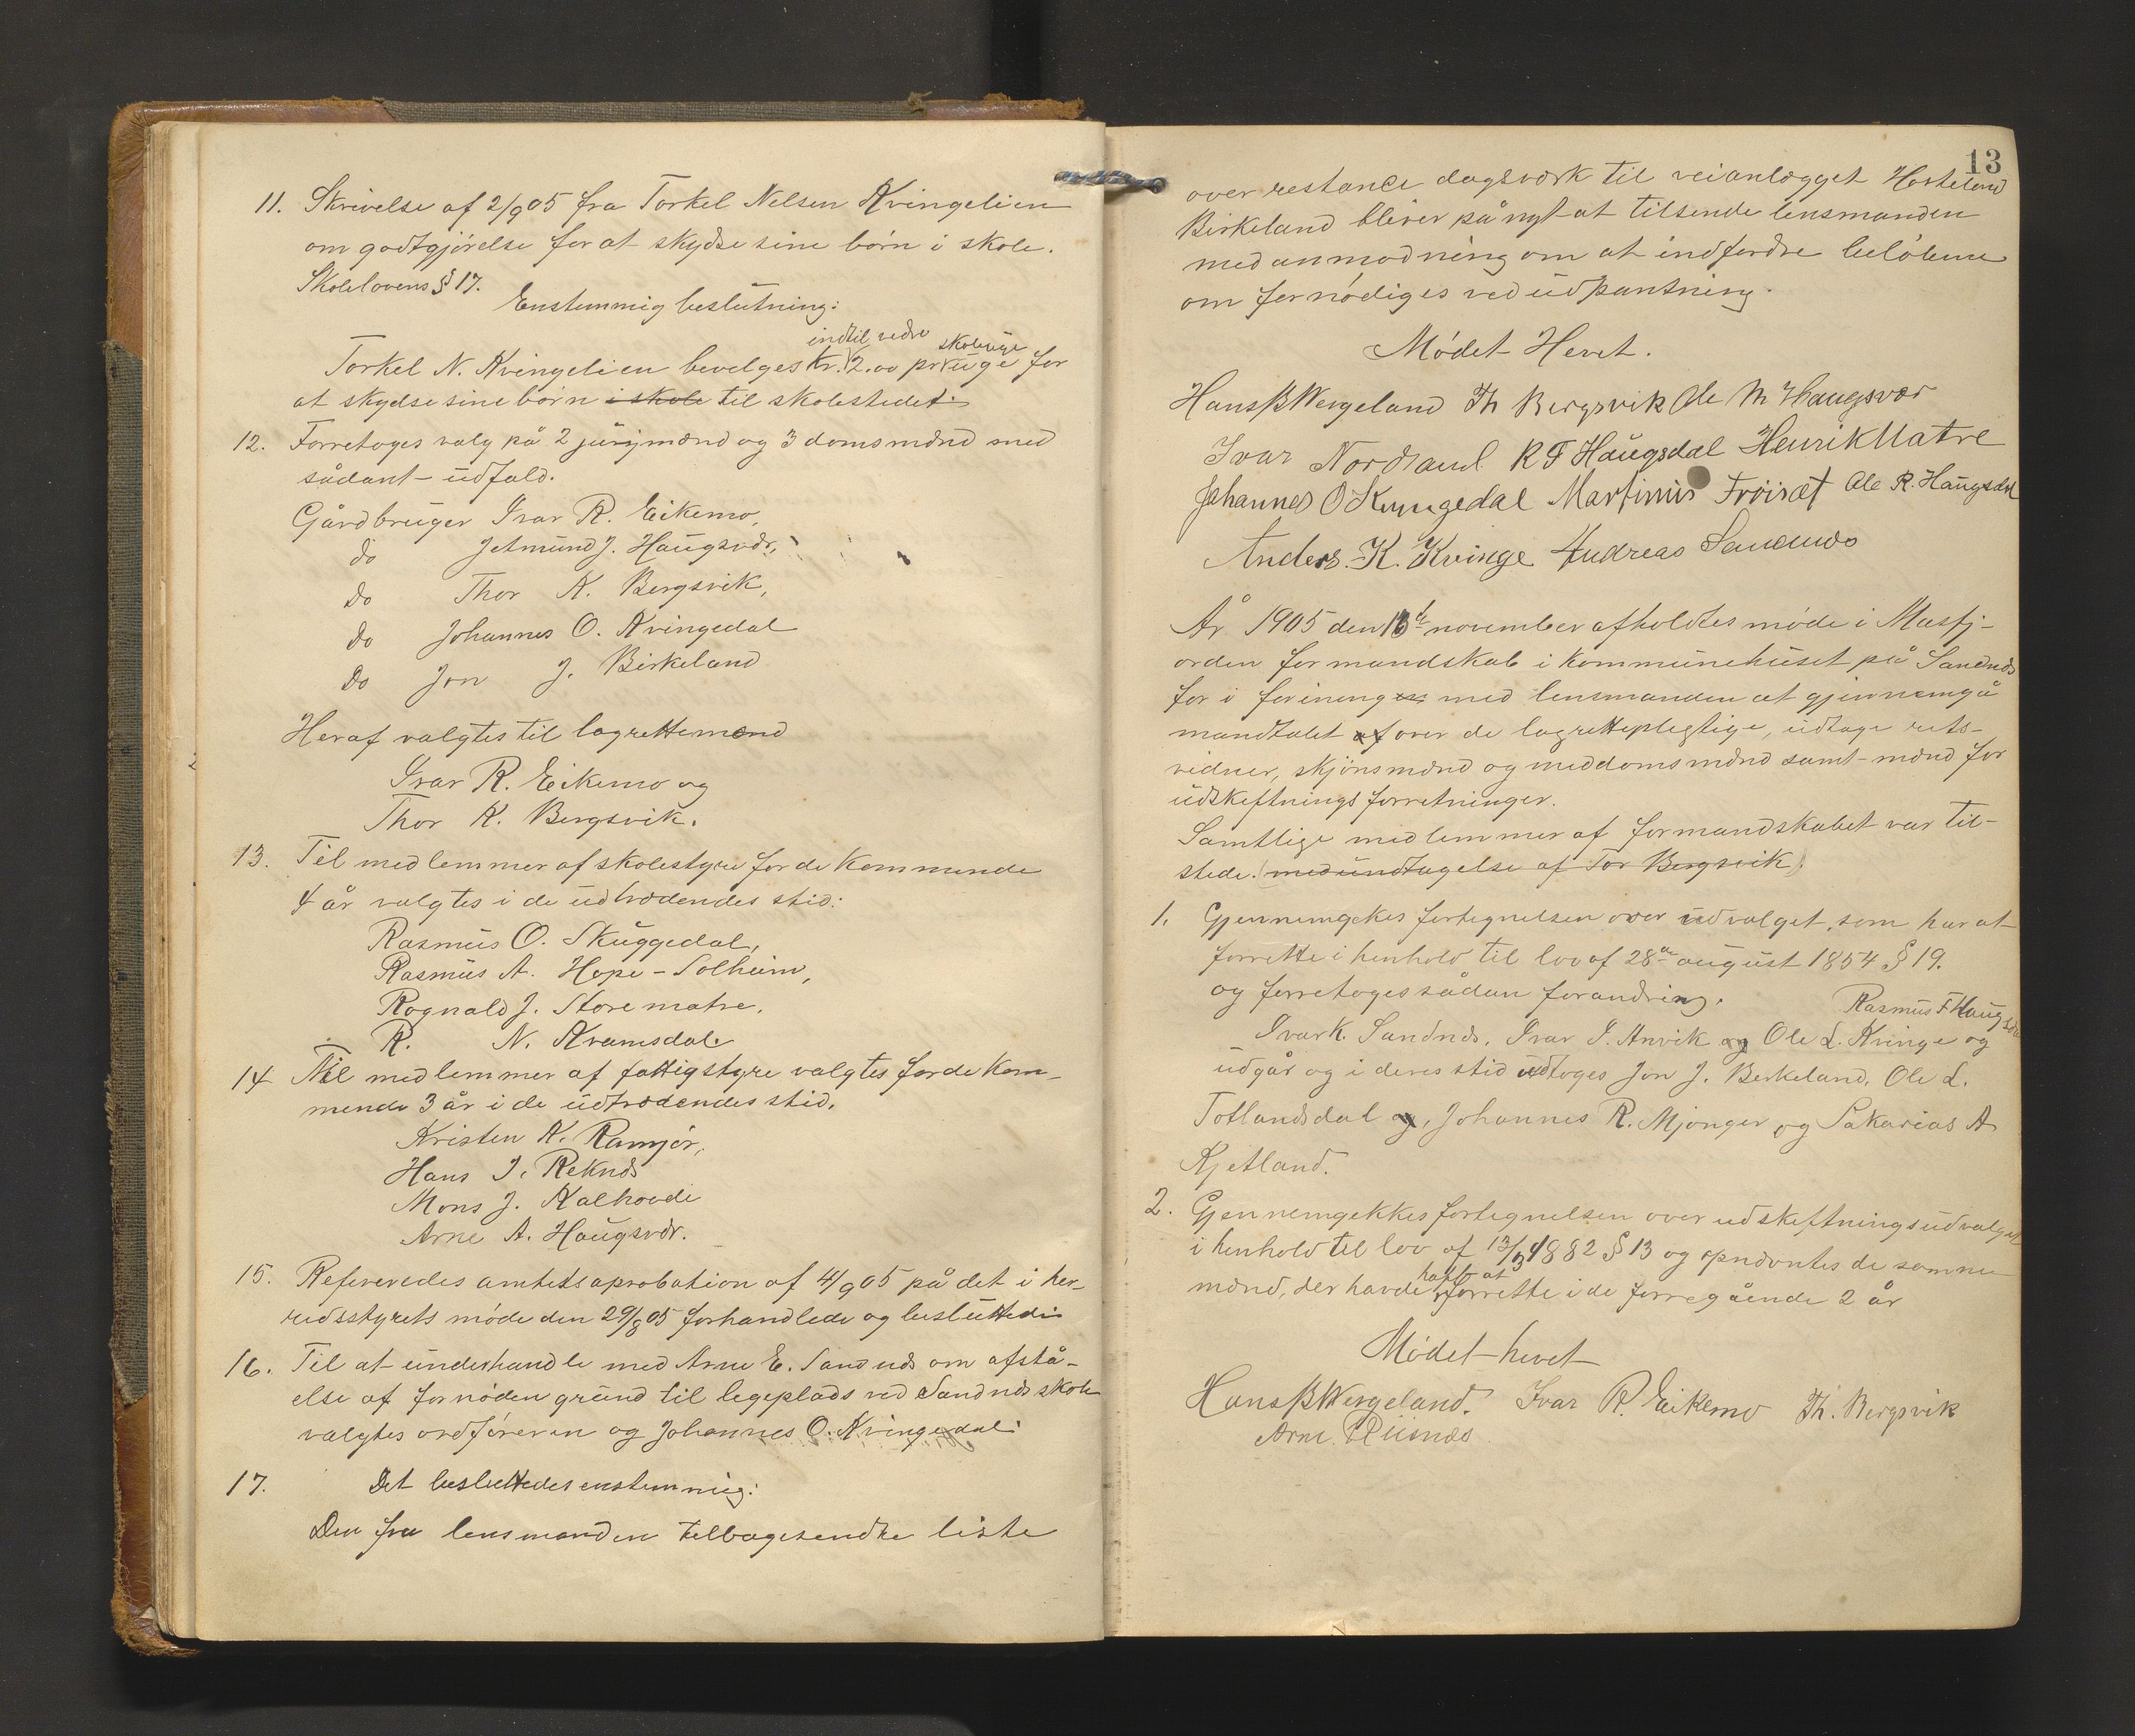 11. Skrivelse af 2/9 05 fra Torkel Nelsen Kvingelien
om godtgjörelse for at skydse sine börn i skole.
Skolelovens § 17.
Enstemmig beslutning:
indtil vedre skoleuge
Torkel N. Kvingelien bevelges kr. 2.00 pr uge for
at skydse sine börn i skole til skolestedet.
12. Forretoges valg på 2 jurymænd og 3 domsmænd med
sådant udfald.
Gårdbruger Ivar R. Eikemo,
do Jetmund J. Haugsvær,
do Thor K. Bergsvik,
do Johannes O. Kvingedal
do Jon J. Birkeland
Heraf valgtes til lagrettemænd
Ivar R. Eikemo og
Thor K. Bergsvik.
13. Til medlemmer af skolestyre for de kommende
4 år valgtes i de udtrædendes stid:
Rasmus O. Skuggedal,
Rasmus A. Hope-Solheim,
Rognald J. Storematre,
R. N. Kvamsdal.
14 Til medlemmer af fattigstyre valgtes for de kom-
mende 3 år i de udtrædendes stid.
Kristen K. Ramjör,
Hans I. Reknæs
Mons J. Kalhovde
Arne A. Haugsvær.
15. Refereredes amtetsaprobation af 4/9 05 på det i her-
redsstyrets möde den 29/8 05 forhandlede og besluttede
16. Til at underhandle med Arne E. Sandnæs om afstå-
else af fornöden grund til legeplads ved Sandnæs skole
valgtes ordföreren og Johannes O. Kvingedal.
17. Det besluttedes enstemmig:
Den fra lensmanden telbagesendte liste
13
over restance dagsværk til veianlægget Hosteland
Birkeland bliver på nyt at tilsende lensmanden
med anmodning om at indfordre belöbene
om fornödiges ved udpantning.
Mödet Hevet.
Hans B Wergeland Th Bergsvik Ole M Haugsvær
Ivar Nordland R F Haugsdal Henrik Matre
Johannes O Kvingedal Martinus Fröiset Ole R. Haugsdal
Anders. K. Kvinge Andreas Sandnæs
År 1905 den 13de november afholdtes möde i Masfj-
orden formandskab i kommunehuset på Sandnæs
for i forening med lensmanden at gjennemgå
mandtalet af over de lagrettepligtige, udtage rets-
vidner, skjönsmænd og meddomsmænd samt mænd for
udskeftningsforretninger.
Samtlige medlemmer af formandskabet var til-
stede. (med undtagelse af Tor Bergsvik).
1. Gjennemgekes fortegnelsen over udvalget, som har at
forrette i henhold til lov af 28de august 1854 § 19.
og forretoges sådan forandring.
Rasmus F Haugsdal
Ivar K. Sandnæs, Ivar I. Anvik og Ole L. Kvinge og
udgår og i deres stid udtoges Jon J. Berkeland, Ole L.
Totlandsdal og, Johannes R. Mjanger og Sakarias A
Kjetland.
2. Gjennemgekkes fortegnelsen over udskeftningsudvalget
i henhold til lov af 13/3 1882 § 13 og opnævntes de samme
havt at
mænd, der havde forrette i de forregående 2 år
Mödet hevet
Hans B Wergeland. Ivar R. Eikemo Th. Bergsvik
Arne Riisnæs